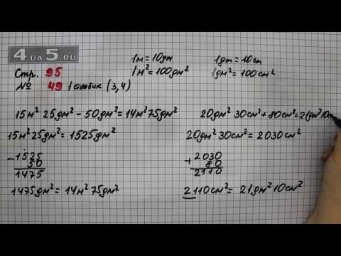 4DA5.RU
1м = 10дм 1дм = 10см
Стр. 95 1м² = 100дм² 1дм² = 100см²
№ 49 1 столбик (3,4)
15м² 25дм² - 50дм² = 14м² 75дм² 20дм² 30см² + 80см² = 21дм² 10см
15м² 25дм² = 1525дм² 20дм² 30см² = 2030см²
- 1525 + 2030
50 80
1475 2110
1475дм² = 14м² 75дм² 2110см² = 21дм² 10см²